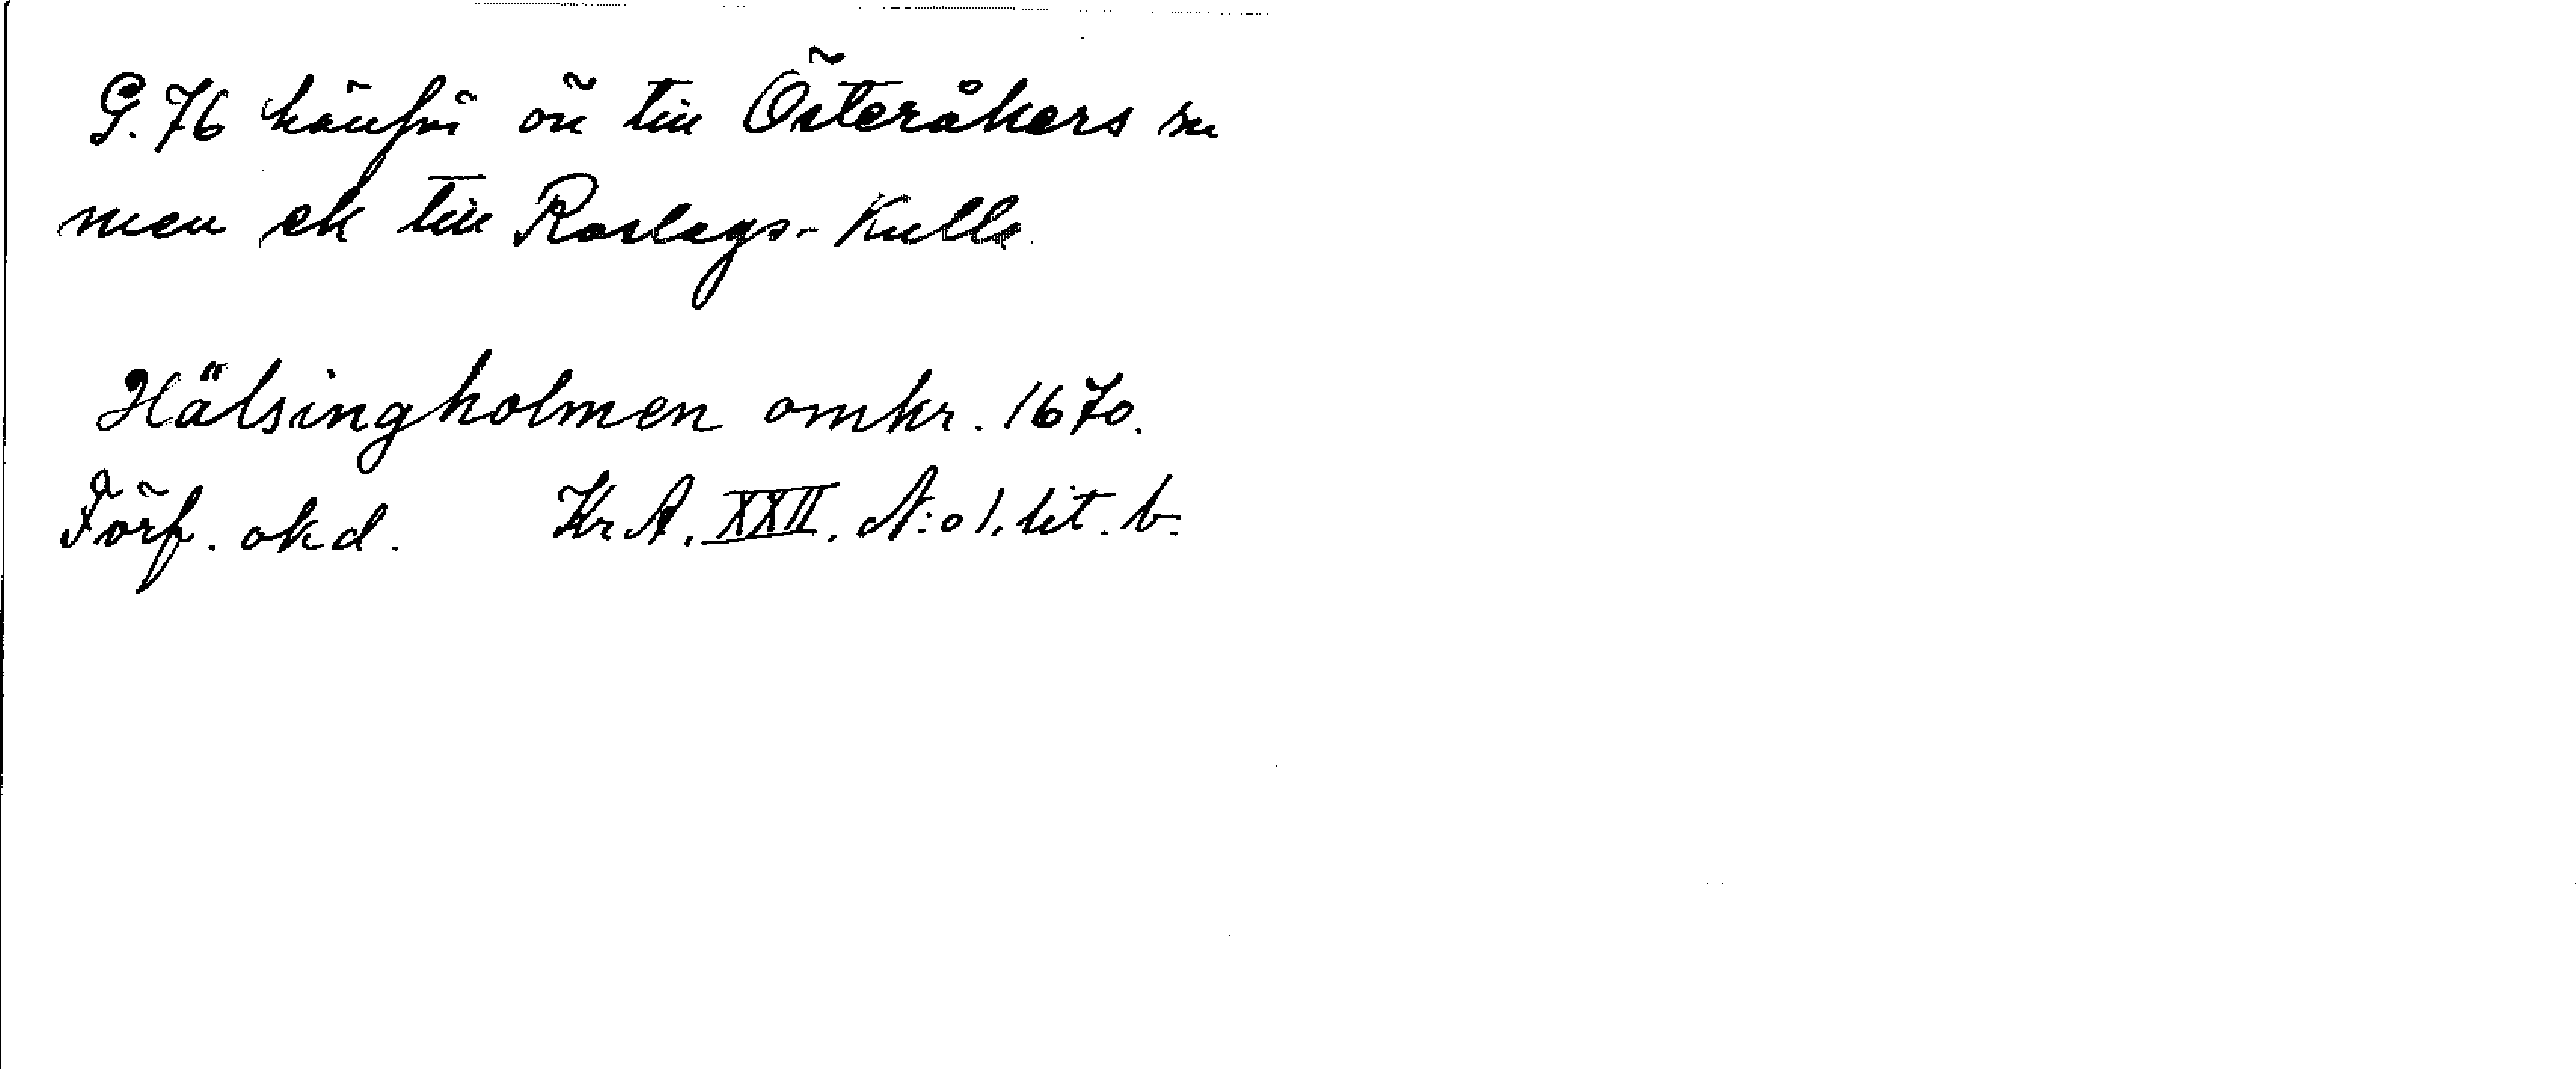 G. 76 hänför ön till Österåkers sn
men ek till Roslags-Kulla.
Hälsingholmen omkr. 1670.
Förf. okd. Kr A. XXII. N:o 1. lit. b.